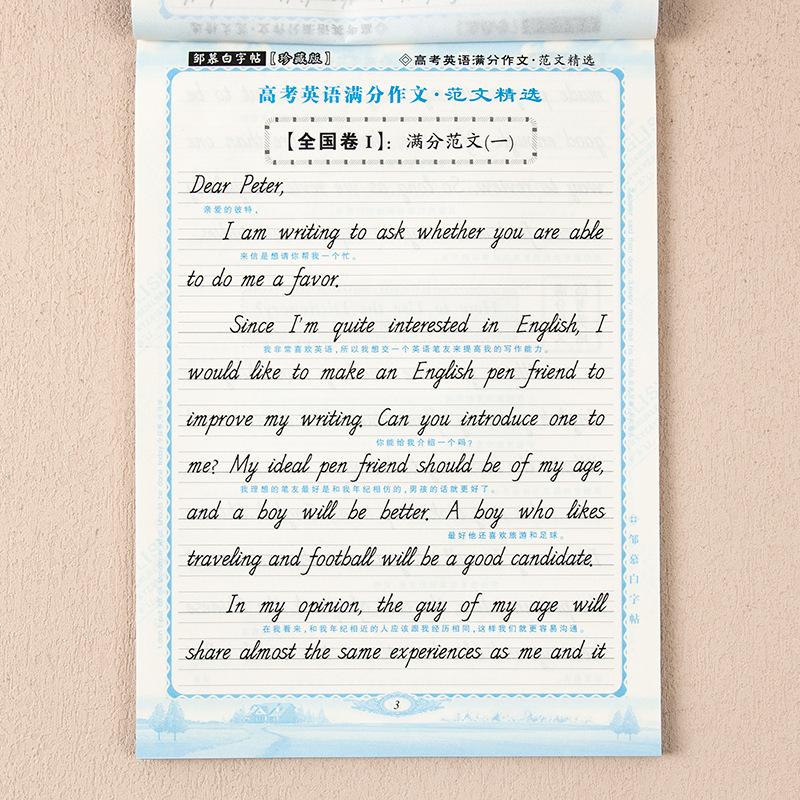 邹慕白字帖【珍藏版】
◇高考英语满分作文·范文精选
高考英语满分作文·范文精选
【全国卷Ⅰ】：满分范文(一)
Dear Peter,
亲爱的彼特，
I am writing to ask whether you are able
来信是想请你帮我一个忙。
to do me a favor.
Since I'm quite interested in English, I
我非常喜欢英语，所以我想交一个英语笔友来提高我的写作能力。
would like to make an English pen friend to
improve my writing. Can you introduce one to
你能给我介绍一个吗？
me? My ideal pen friend should be of my age,
我理想的笔友最好是和我年纪相仿的，男孩的话就更好了。
and a boy will be better. A boy who likes
最好他还喜欢旅游和足球。
traveling and football will be a good candidate.
In my opinion, the guy of my age will
在我看来，和我年纪相近的人应该跟我经历相同，这样我们就更容易沟通。
share almost the same experiences as me and it
邹慕白字帖
3